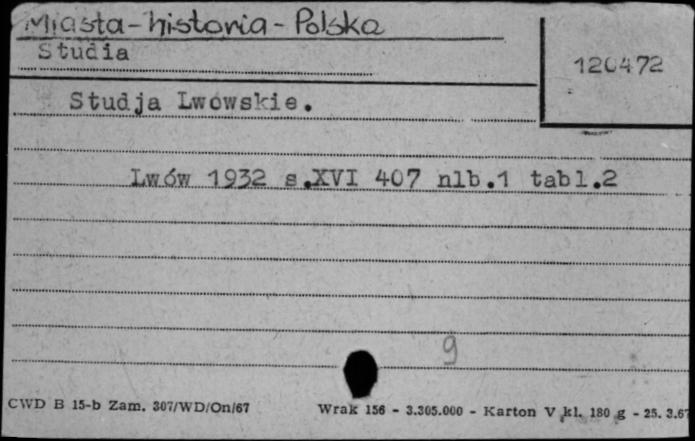 Miasta - historia - Polska
Studia
120472
Studja Lwowskie.
Lwów 1932 s.XVI 407 nlb.1 tabl.2
9
CWD B 15-b Zam. 307/WD/On/67 Wrak 156 - 3.305.000 - Karton V kl. 180 g - 25. 3.67